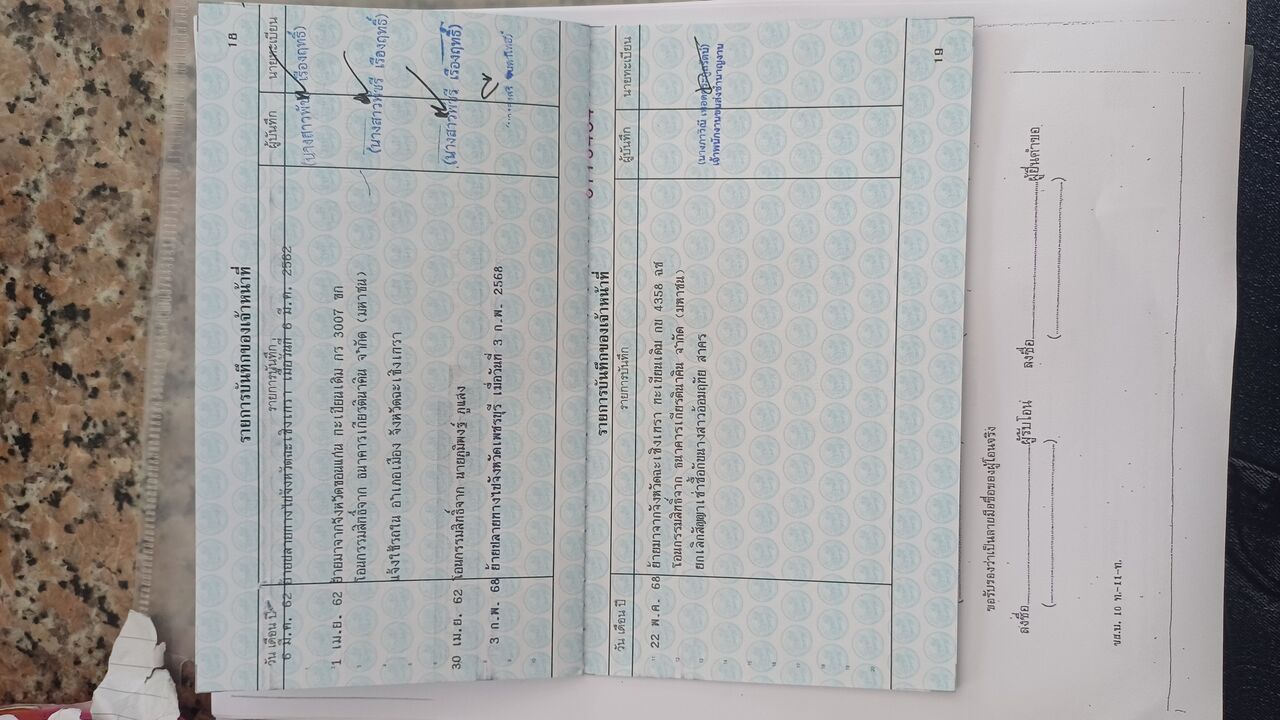 18
รายการบันทึกของเจ้าหน้าที่
วัน เดือน ปี รายการบันทึก ผู้บันทึก นายทะเบียน
6 มี.ค. 62 ย้ายปลายทางไปจังหวัดฉะเชิงเทรา เมื่อวันที่ 6 มี.ค. 2562
เรืองฤทธิ์)
1 เม.ย. 62 ย้ายมาจากจังหวัดขอนแก่น ทะเบียนเดิม กร 3007 ขก
โอนกรรมสิทธิ์จาก ธนาคารเกียรตินาคิน จำกัด (มหาชน)
(นางสาวพัชรี เรืองฤทธิ์)
แจ้งใช้รถใน อำเภอเมือง จังหวัดฉะเชิงเทรา
30 เม.ย. 62 โอนกรรมสิทธิ์จาก นายภูมิพงษ์ ภูแล่ง
(นางสาวพัชรี เรืองฤทธิ์)
3 ก.พ. 68 ย้ายปลายทางไปจังหวัดเพชรบุรี เมื่อวันที่ 3 ก.พ. 2568
รายการบันทึกของเจ้าหน้าที่
วัน เดือน ปี รายการบันทึก ผู้บันทึก นายทะเบียน
22 พ.ค. 68 ย้ายมาจากจังหวัดฉะเชิงเทรา ทะเบียนเดิม กข 4358 ฉช
โอนกรรมสิทธิ์จาก ธนาคารเกียรตินาคิน จำกัด (มหาชน)
ยกเลิกสัญญาเช่าซื้อกับนางสาวอ้อมฤทัย สาคร
(นางภาวิณี
เจ้าพนักงานขนส่งชำนาญงาน
19
ขอรับรองว่าเป็นลายมือชื่อของผู้โอนจริง
ลงชื่อ ผู้รับโอน ลงชื่อ ผู้ยื่นคำขอ
( ) ( )